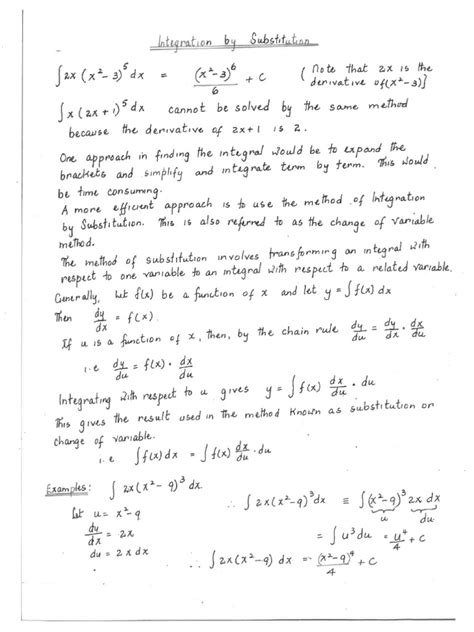 Integration by Substitution
∫2x (x²-3)⁵ dx = (x²-3)⁶/6 + c {Note that 2x is the
derivative of (x²-3)}
∫x (2x+1)⁵ dx cannot be solved by the same method
because the derivative of 2x+1 is 2.
One approach in finding the integral would be to expand the
brackets and simplify and integrate term by term. This would
be time consuming.
A more efficient approach is to use the method of Integration
by Substitution. This is also referred to as the change of variable
method.
The method of substitution involves transforming an integral with
respect to one variable to an integral with respect to a related variable.
Generally, let f(x) be a function of x and let y = ∫f(x) dx
Then dy/dx = f(x).
If u is a function of x, then, by the chain rule dy/du = dy/dx · dx/du
i.e dy/du = f(x) · dx/du
Integrating with respect to u gives y = ∫f(x) dx/du · du
This gives the result used in the method known as substitution or
change of variable.
i.e ∫f(x) dx = ∫f(x) dx/du · du
Examples: ∫2x(x²-9)³ dx
Let u = x²-9 ∴ ∫2x(x²-9)³dx ≡ ∫(x²-9)³ 2x dx
u du
dy/dx = 2x = ∫u³du = u⁴/4 + c
du = 2x dx ∴ ∫2x(x²-9) dx = (x²-9)⁴/4 + c